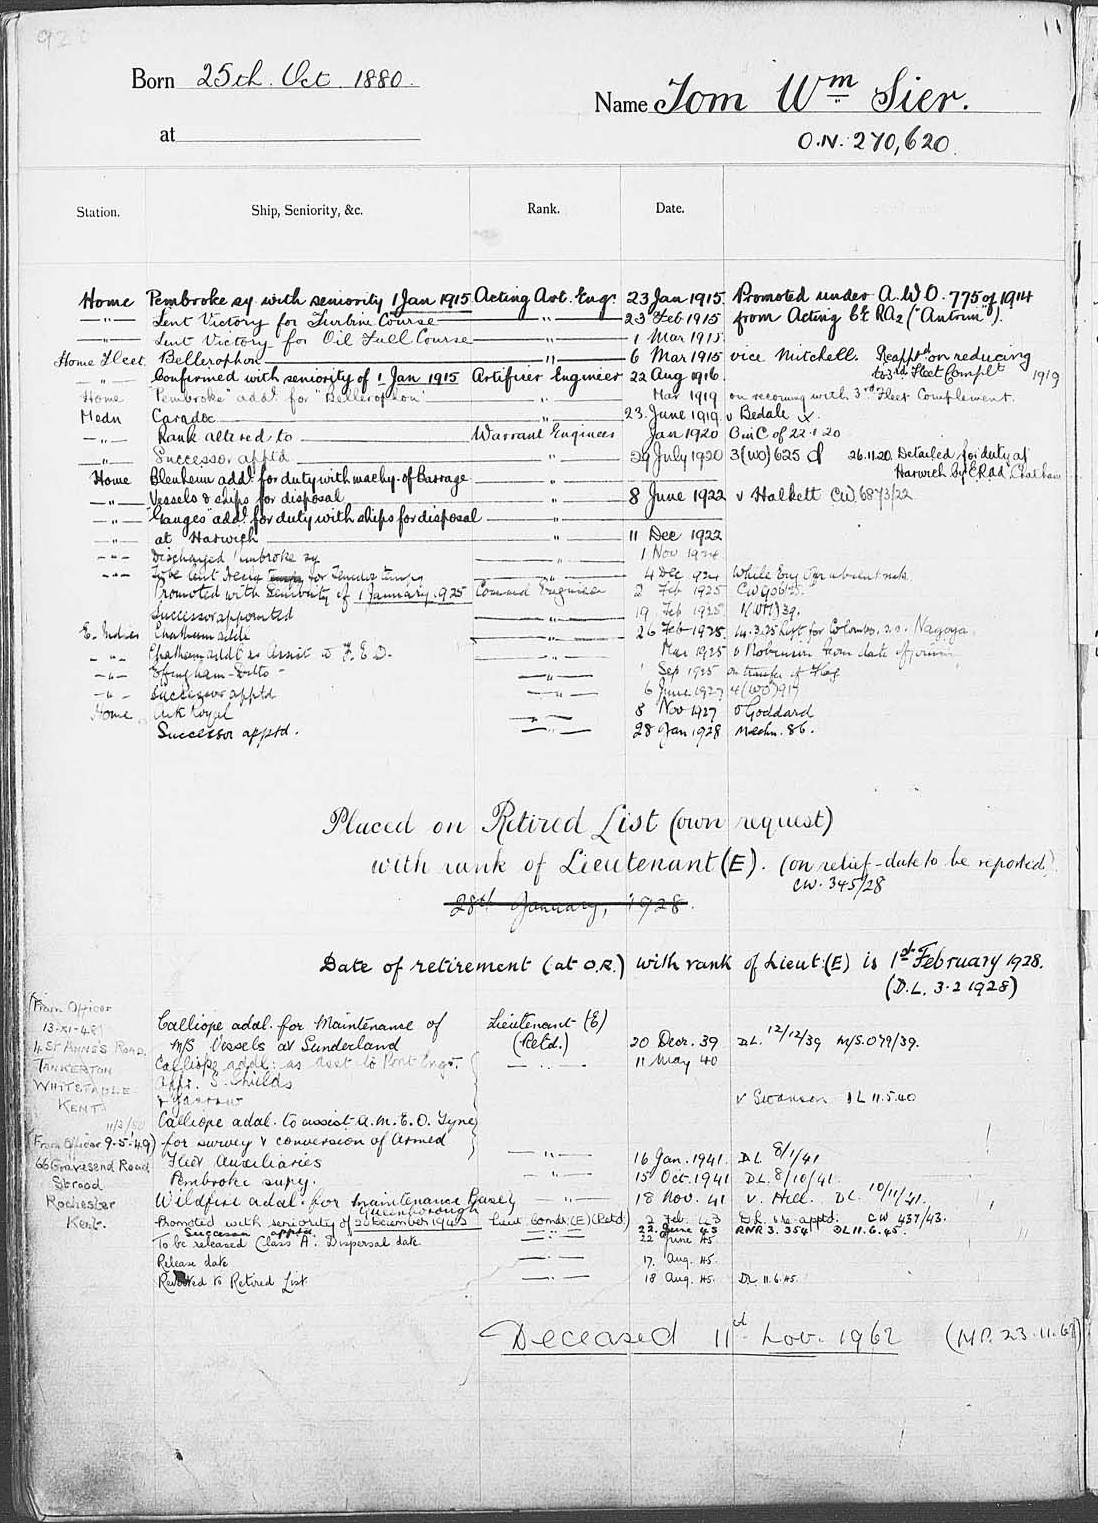 920
Born 25th. Oct. 1880.
Name Tom Wm Sier.
at
O.N. 270,620.
Station. Ship, Seniority, &c. Rank. Date.
Home Pembroke sy with seniority 1 Jan 1915 Acting Art. Engr. 23 Jan 1915. Promoted under A.W.O. 775 of 1914
—"— Lent Victory for Turbine Course —"— 23 Feb 1915 from Acting CE RA2 ("Antrim").
—"— Lent Victory for Oil Fuel Course —"— 1 Mar 1915
Home Fleet Bellerophon —"— 6 Mar 1915 vice Mitchell. Reapptd on reducing
to 3rd Fleet Complt 1919
—"— Confirmed with seniority of 1 Jan 1915 Artificer Engineer 22 Aug 1916.
Home "Pembroke" addl. for "Bellerophon" —"— Mar 1919 on recomg with 3rd Fleet Complement.
Medn Caradoc —"— 23. June 1919 v Bedale
—"— Rank altered to Warrant Engineer Jan 1920 OinC of 22.1.20
—"— Successor apptd —"— 29 July 1920 3(WO)625 26.11.20. Detailed for duty at
Harwich by ERad. Chatham
Home Blenheim addl. for duty with machy. of Barrage —"—
—"— Vessels & ships for disposal —"— 8 June 1922 v Halkett CW.6873/22
—"— "Ganges" addl. for duty with ships for disposal —"—
—"— at Harwich —"— 11 Dec 1922
—"— Discharged Pembroke sy —"— 1 Nov 1924
—"— To be lent for Tender —"— 4 Dec 1924 While Eng Ofr absent sick
Promoted with Seniority of 1 January. 1925 Commd Engineer 2 Feb 1925 CW
Successor appointed —"— 19 Feb 1925
E. Indies Chatham addl —"— 26 Feb 1925. 14.3.25 Left for Colombo. s.s. Nagoya.
—"— Chatham addl as Assist to F.E.O. —"— Mar 1925 v Robinson from date of joining
—"— Effingham - Ditto - —"— 1 Sep 1925 on transfer of Flag
—"— Successor apptd —"— 6 June 1927 4(WO)917
Home Ark Royal —"— 8 Nov 1927 v Goddard
Successor apptd. —"— 28 Jan 1928 Medn. 86.
Placed on Retired List (own request)
with rank of Lieutenant (E). (on relief - date to be reported)
CW. 345/28
28th January, 1928.
Date of retirement (at O.R.) with rank of Lieut: (E) is 1st February 1928.
(D.L. 3.2 1928)
(From Officer
13-XI-48)
4. St Anne's Road.
Tankerton
Whitstable
Kent)
11/2/50
(From Officer 9.5.49)
66 Gravesend Road
Strood
Rochester
Kent.
Calliope addl. for Maintenance of Lieutenant (E)
M/S Vessels at Sunderland (Retd.) 20 Decr. 39 DL. 12/12/39 M/S.079/39.
Calliope addl: as Asst to Port Engr. —"— 11 May 40
Offr. S. Shields
& Jarrow v Swanson DL 11.5.40
Calliope addl. to assist A.M.E.O. Tyne
for survey & conversion of Armed
Fleet Auxiliaries —"— 16 Jan. 1941. DL 8/1/41
Pembroke supy. " 15 Oct. 1941 DL. 8/10/41.
Wildfire addl. for Maintenance Base, —"— 18 Nov. 41 v. Hill. DL 10/11/41.
Queenborough
Promoted with seniority of 2 December 1942 Lieut. Comdr. (E) (Retd) 2 Feb. 43 CW 437/43.
Successor apptd. 22 June 45 RNR 3. 354 DL 11.6.45.
To be released Class A. Dispersal date —"— 22 June 45.
Release date —"— 17. Aug. 45.
Reverted to Retired List —"— 18 Aug. 45. DL 11.6.45.
Deceased 11th Nov. 1962 (MP. 23.11.62)